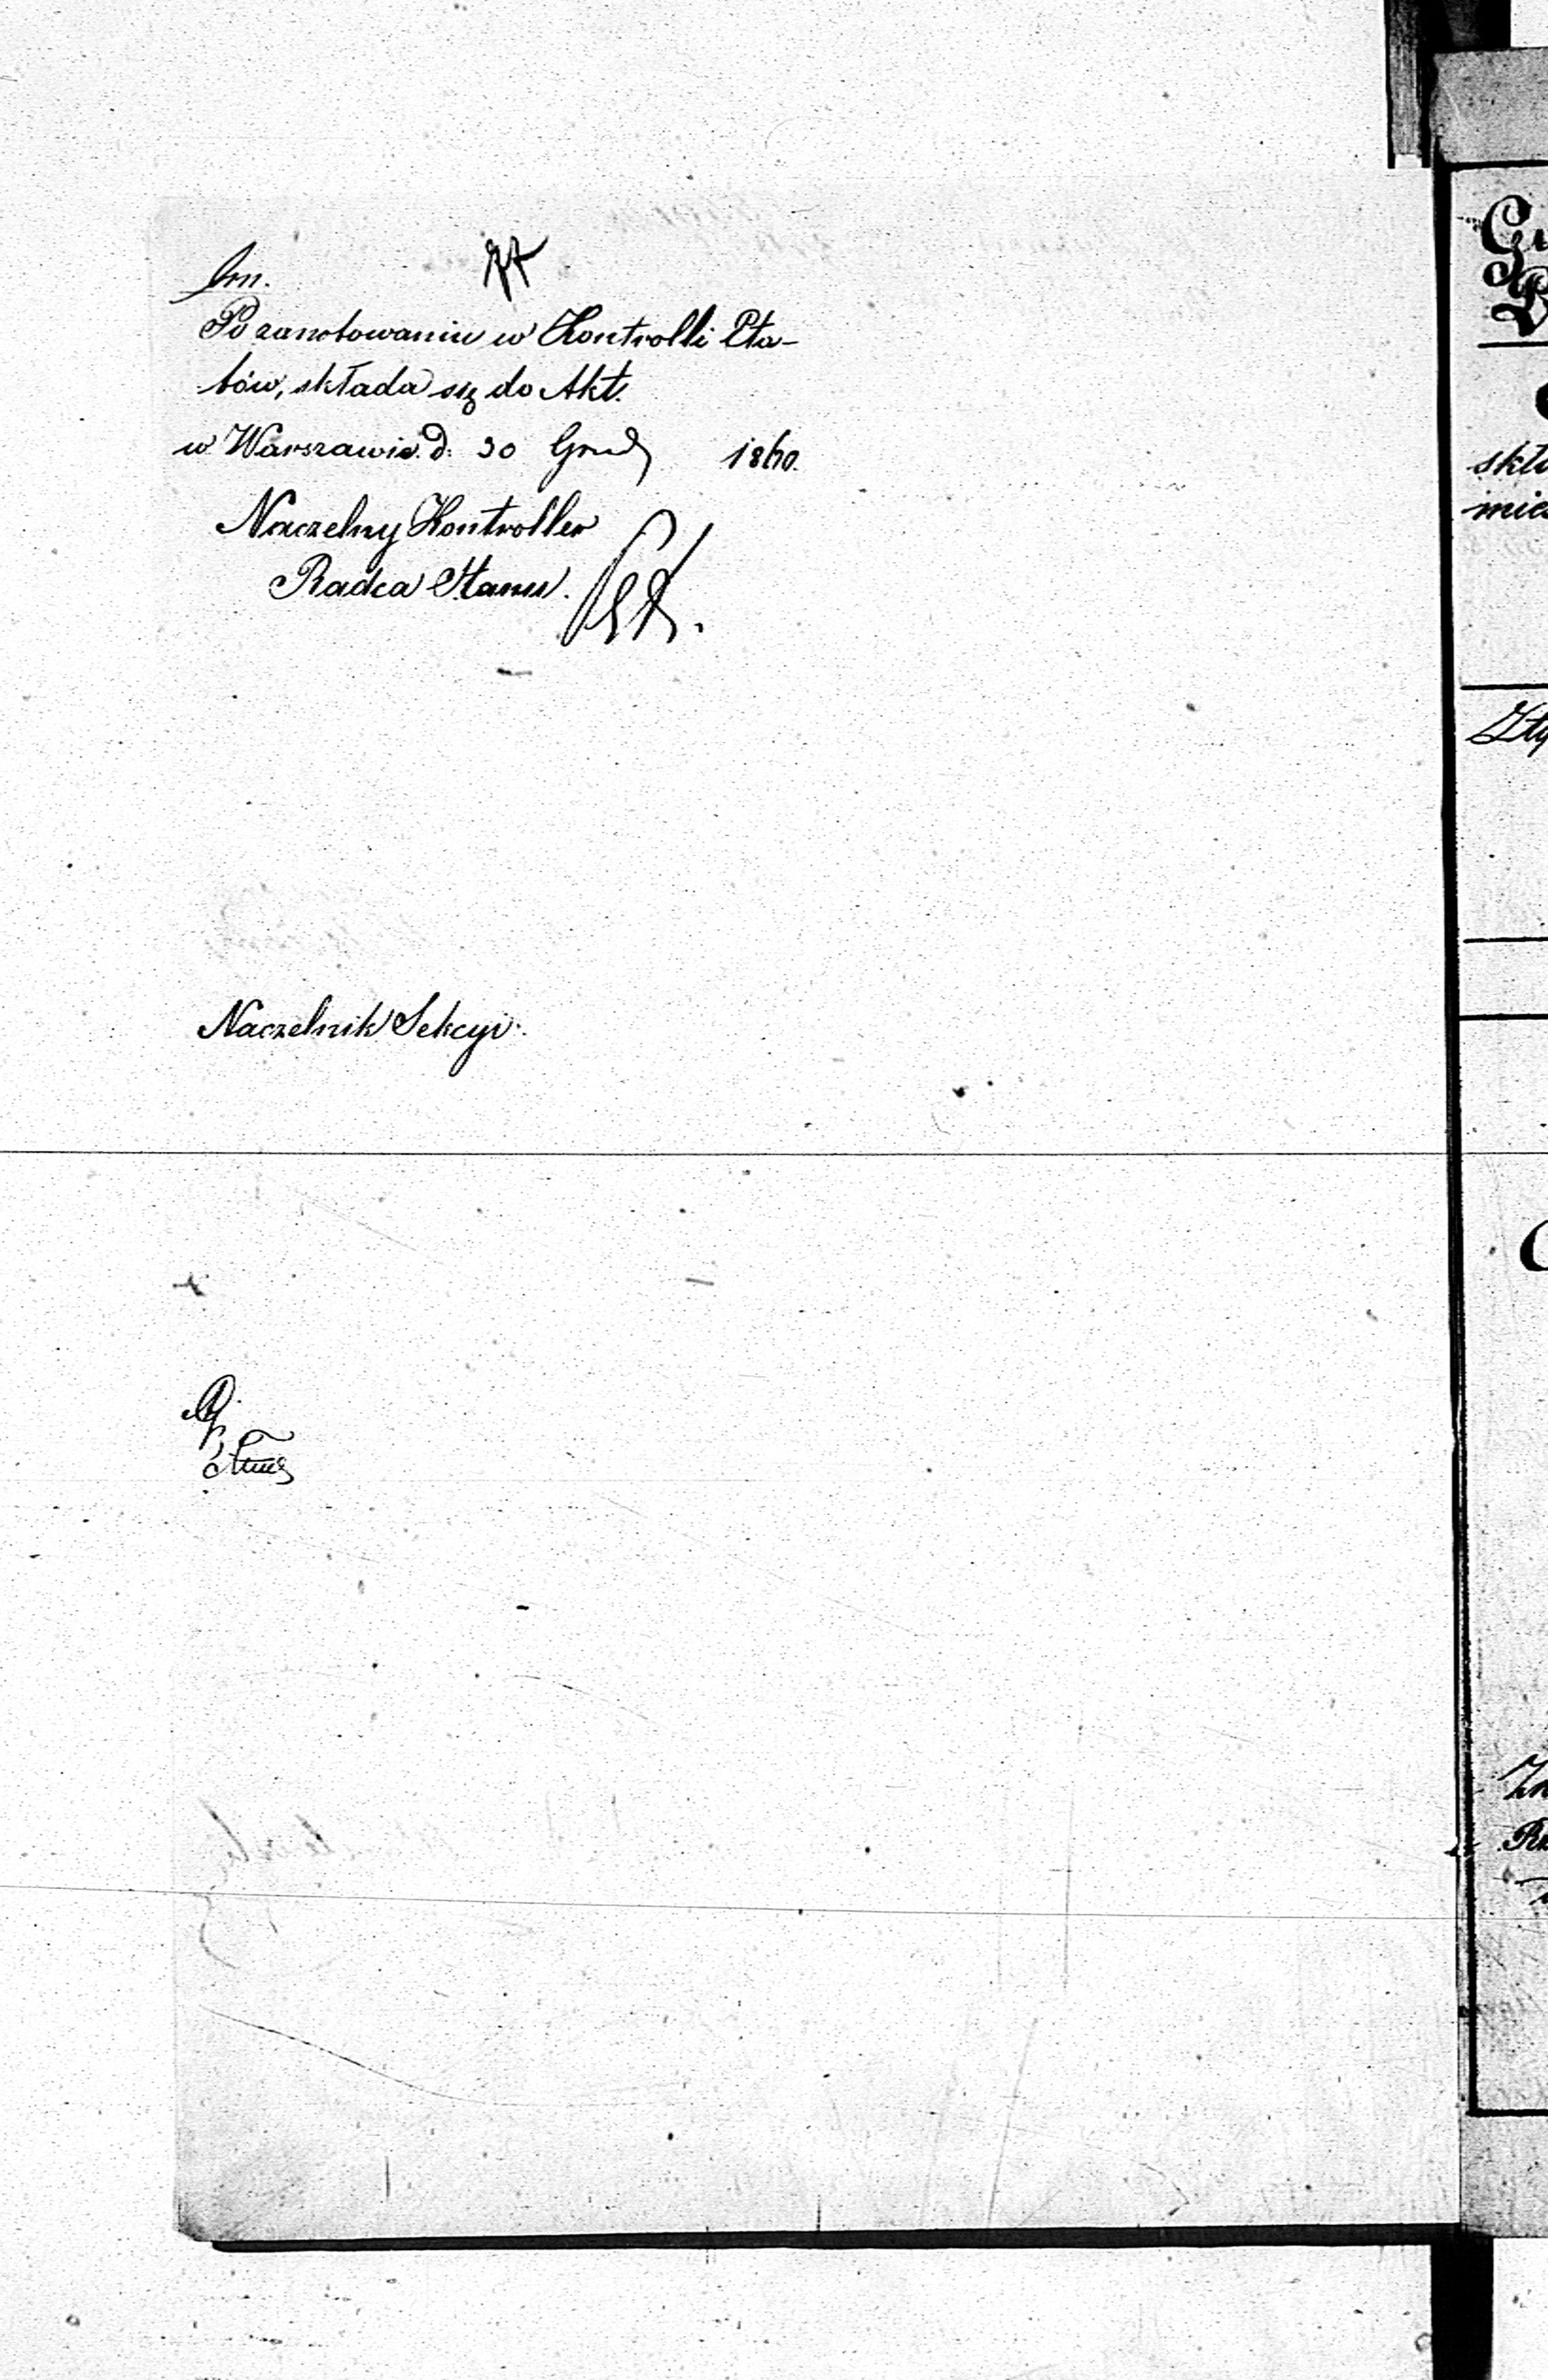 Po zanotowaniu w Kontrolli Eta-
tów, składa się do Akt.
w Warszawie d: 30 Grud 1860.
Naczelny Kontroller
Radca Stanu.
Naczelnik Sekcyi.
skł
mies